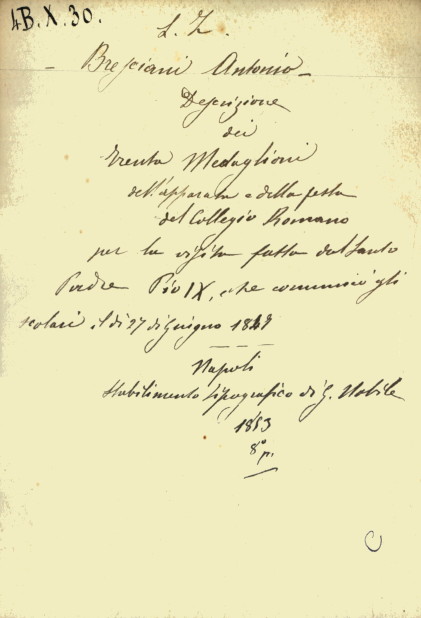 4B.X.30.
L. Z.
Bresciani Antonio
Descrizione
dei
trenta Medaglioni
dell'apparato e della festa
del Collegio Romano
per la visita fatta dal Santo
Padre Pio IX, che comunicò gli
scolari il dì 27 di Giugno 1847
Napoli
Stabilimento tipografico di G. Nobile
1853
8° p.
C